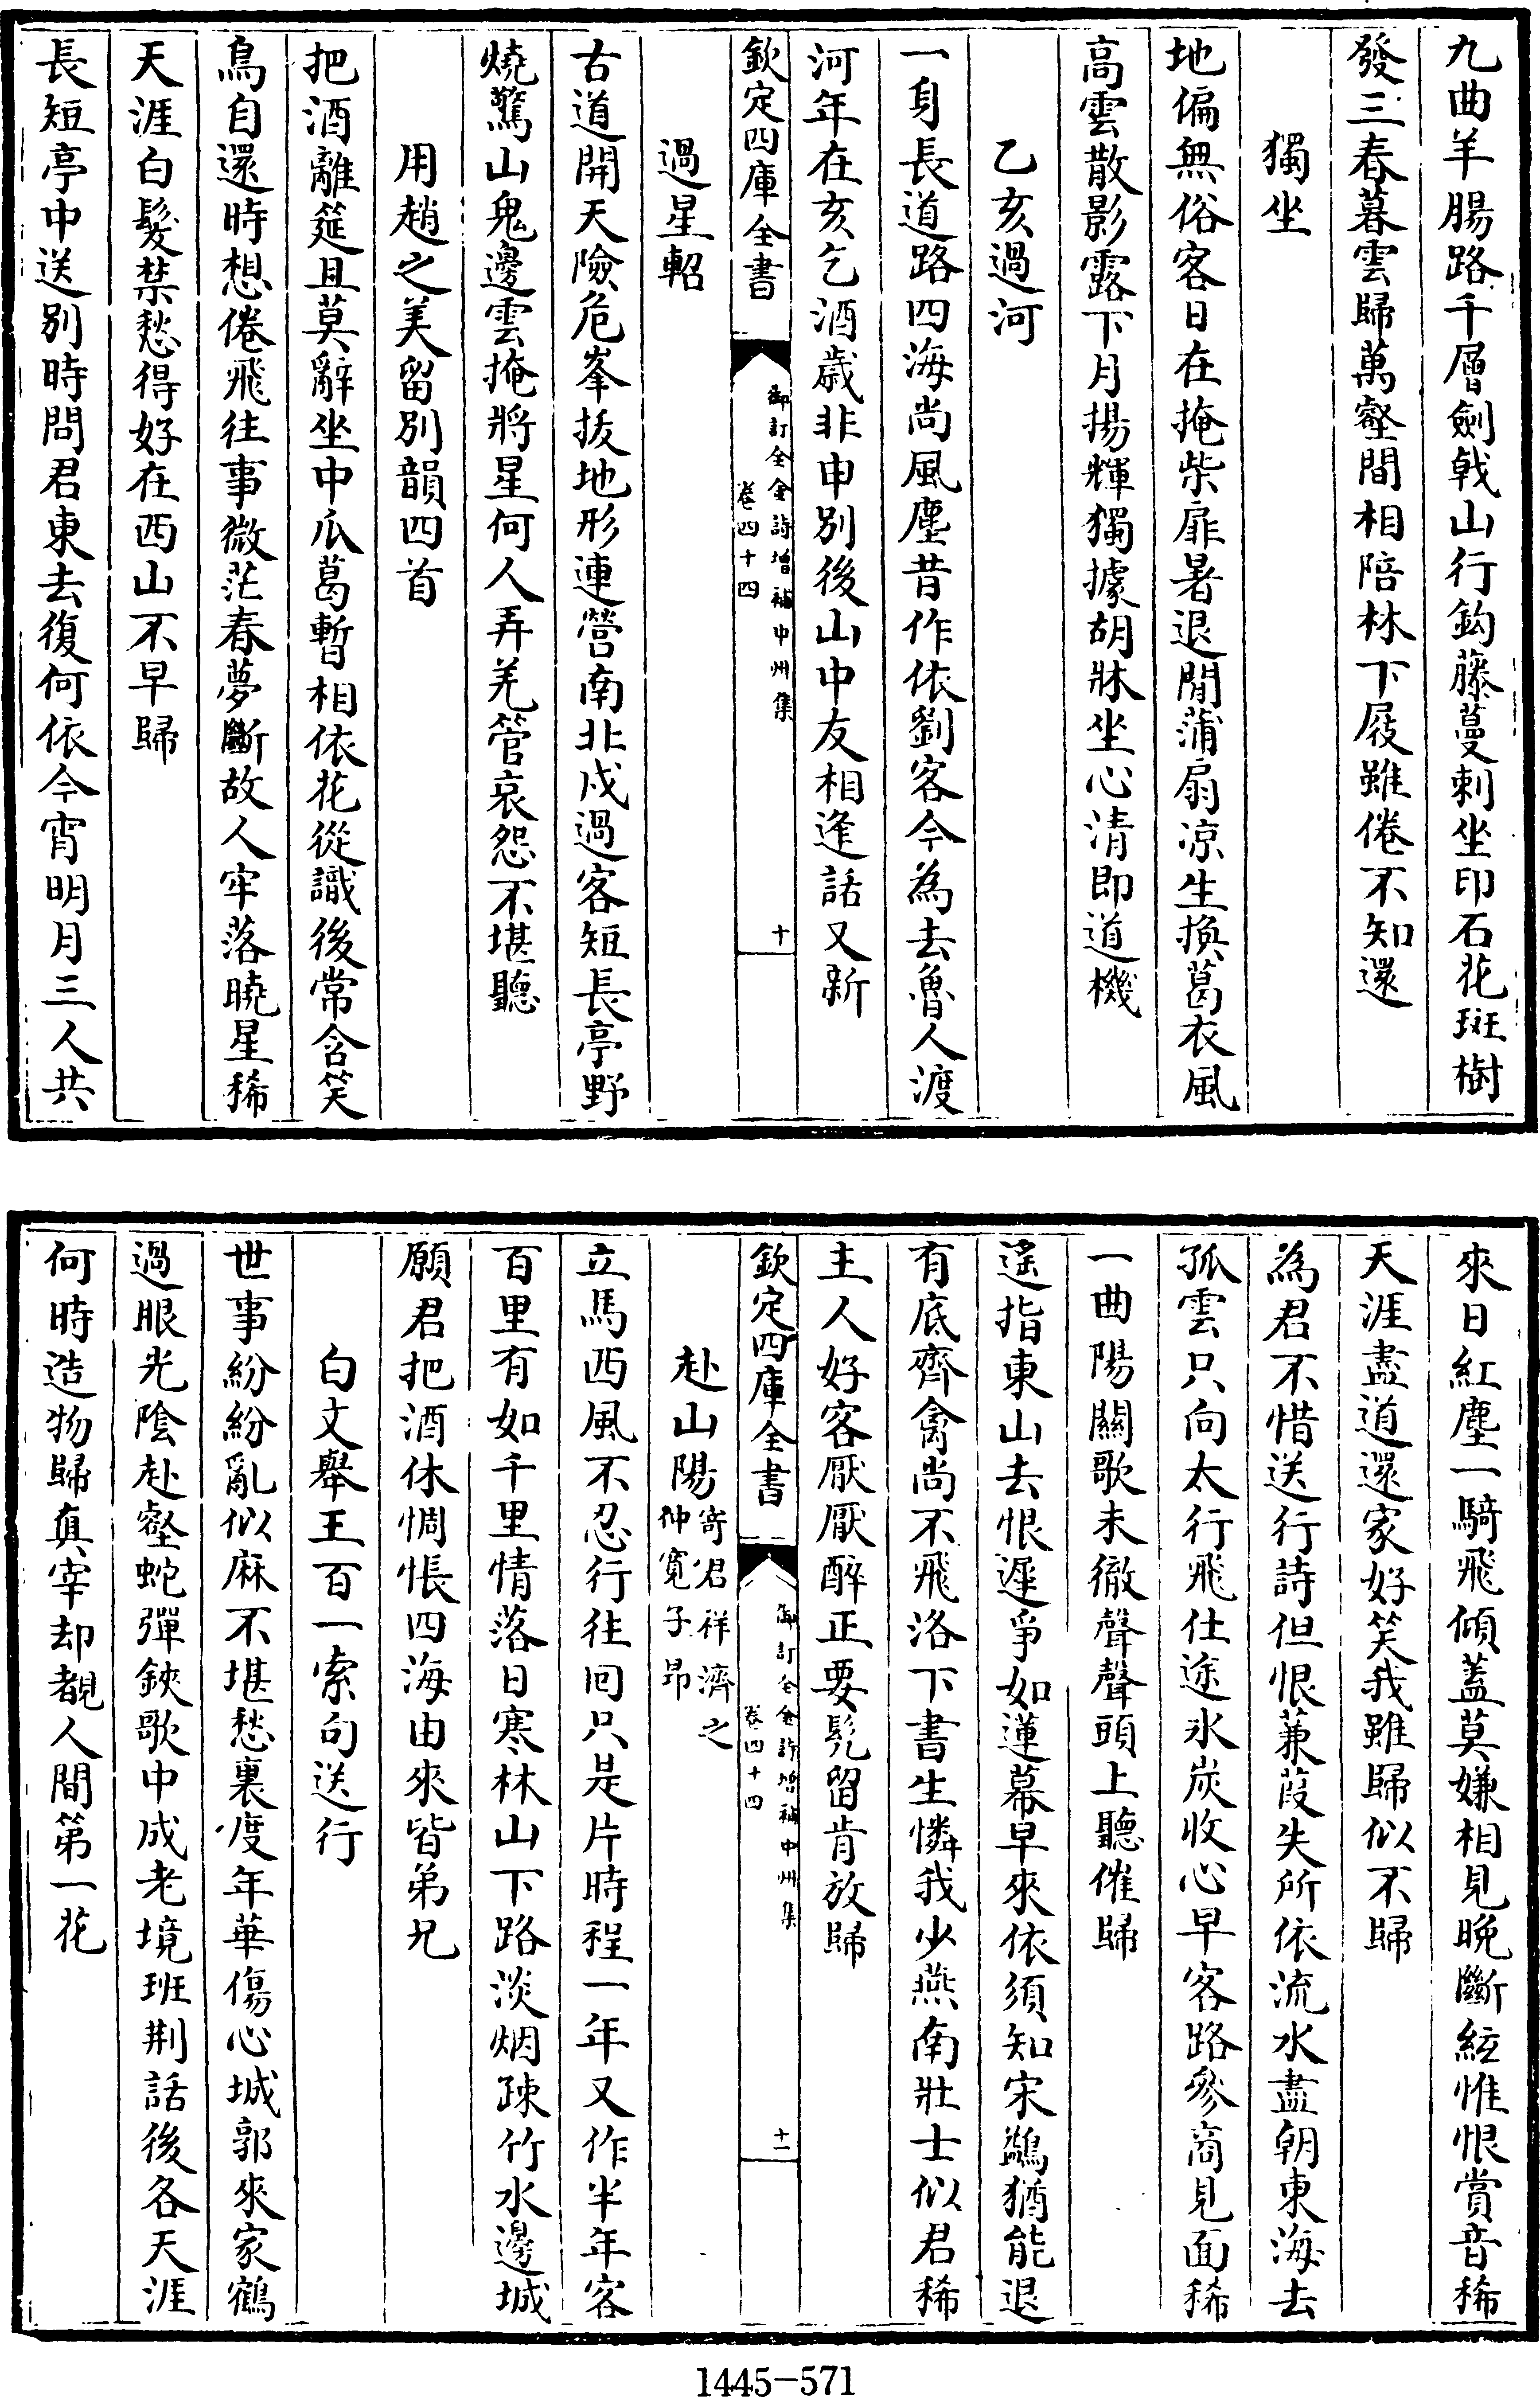 九曲羊腸路千層劍戟山行鈎藤蔓刺坐印石花斑樹
發三春暮雲歸萬壑間相陪林下屐雖倦不知還
獨坐
地偏無俗客日在掩柴扉暑退閒蒲扇凉生換葛衣風
高雲散影露下月揚輝獨據胡牀坐心清即道機
乙亥過河
一身長道路四海尚風塵昔作依劉客今為去魯人渡
河年在亥乞酒歲非申別後山中友相逢話又新
欽定四庫全書
御訂全金詩增補中州集
卷四十四
十
過星軺
古道開天險危峯拔地形連營南北戍過客短長亭野
燒驚山鬼邊雲掩將星何人弄羌管哀怨不堪聽
用趙之美留別韻四首
把酒離筵且莫辭坐中瓜葛暫相依花從識後常含笑
鳥自還時想倦飛往事微茫春夢斷故人牢落曉星稀
天涯白髮禁愁得好在西山不早歸
長短亭中送別時問君東去復何依今宵明月三人共
來日紅塵一騎飛傾蓋莫嫌相見晚斷絃惟恨賞音稀
天涯盡道還家好笑我雖歸似不歸
為君不惜送行詩但恨蒹葭失所依流水盡朝東海去
孤雲只向太行飛仕途氷炭收心早客路參商見面稀
一曲陽關歌未徹聲聲頭上聽催歸
遥指東山去恨遲爭如蓮幕早來依須知宋鷁猶能退
有底齊禽尚不飛洛下書生憐我少燕南壯士似君稀
主人好客厭厭醉正要髡留肯放歸
欽定四庫全書
御訂全金詩增補中州集
卷四十四
十一
赴山陽寄君祥濟之
仲寬子昂
立馬西風不忍行往回只是片時程一年又作半年客
百里有如千里情落日寒林山下路淡烟疎竹水邊城
願君把酒休惆悵四海由來皆弟兄
白文舉王百一索句送行
世事紛紛亂似麻不堪愁裏度年華傷心城郭來家鶴
過眼光陰赴壑蛇彈鋏歌中成老境班荆話後各天涯
何時造物歸真宰却覩人間第一花
1445-571